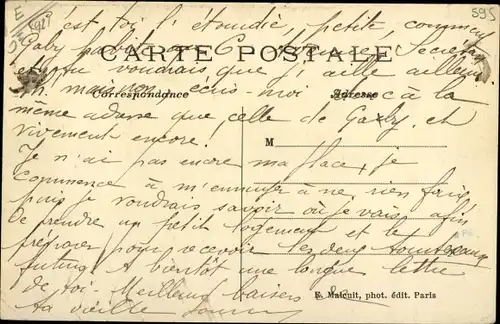 c'est toi l'étourdie, petite, comment
Gaby
CARTE POSTALE
et tu voudrais que j'aille ailleurs.
Correspondance
Adresse
écris-moi donc à la
même adresse que celle de Gaby, et
vivement encore.
M
Je n'ai pas encore ma place, je
commence à m'ennuyer à ne rien faire
puis je voudrais savoir où je vais afin
de prendre un petit logement et le
préparer pour recevoir les deux tourtereaux
futurs. A bientôt une longue lettre
de toi. Meilleurs baisers
E. Malcuit, phot. édit. Paris
ta vieille